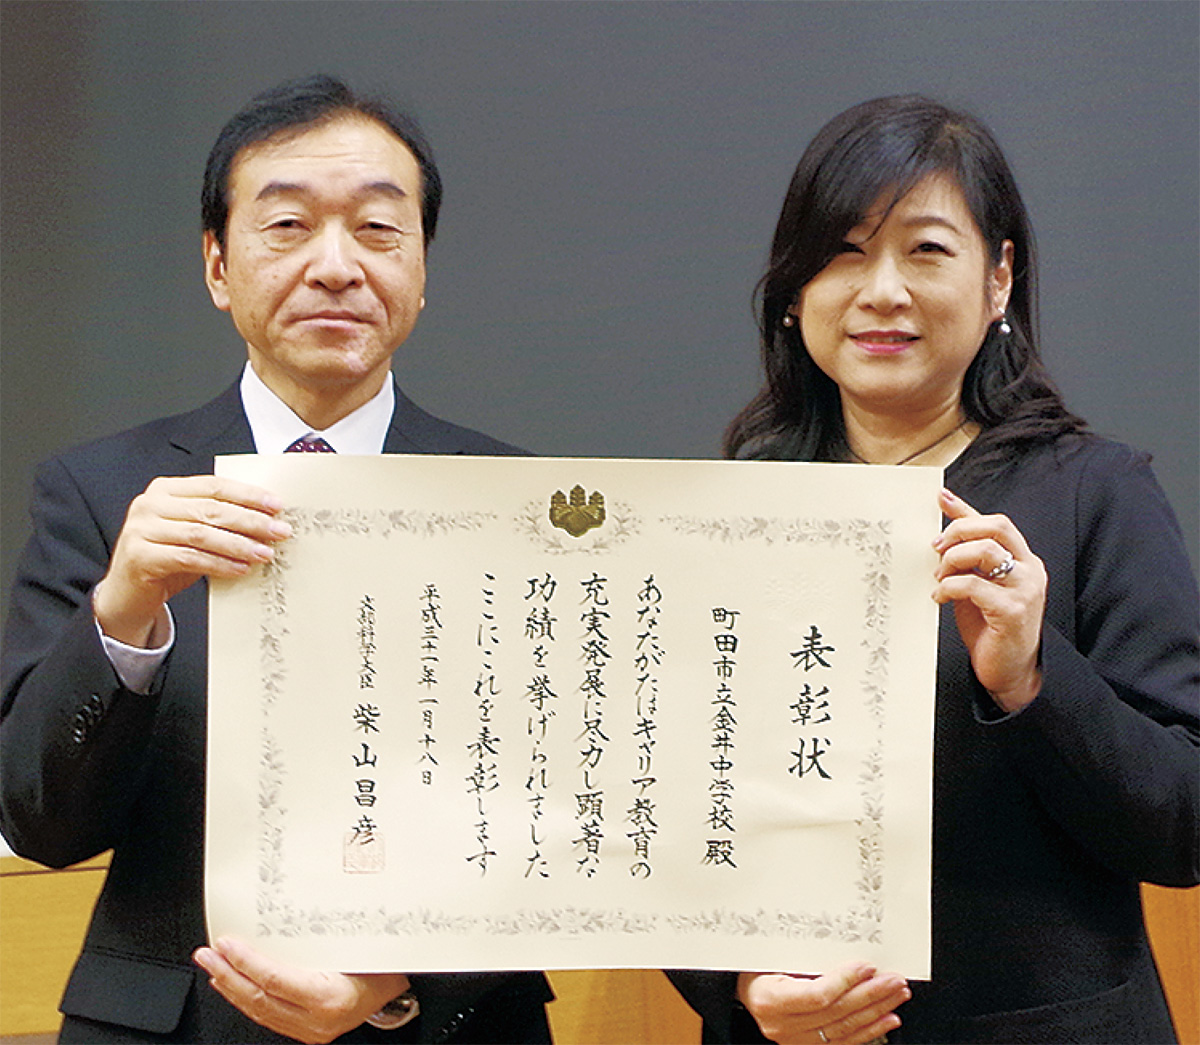 表彰状
町田市立金井中学校殿
あなたがたはキャリア教育の
充実発展に尽力し顕著な
功績を挙げられました
ここにこれを表彰します
平成三十一年一月十八日
文部科学大臣 柴山昌彦